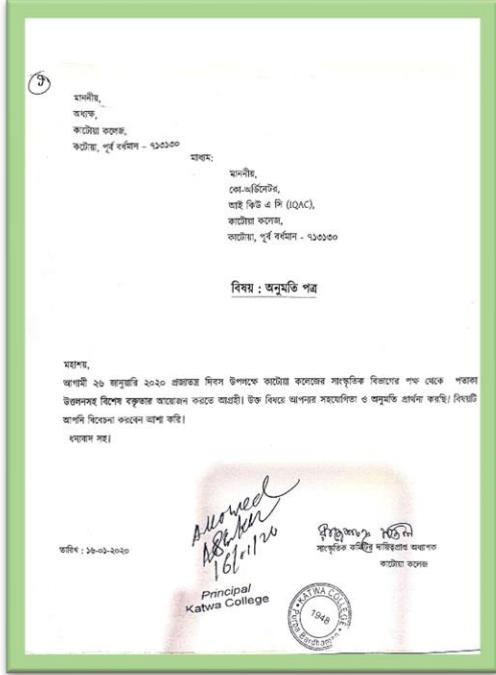 মাননীয়,
অধ্যক্ষ,
কাটোয়া কলেজ,
কাটোয়া, পূর্ব বর্ধমান - ৭১৩১৩০
মাধ্যম:
মাননীয়,
কো-অর্ডিনেটর,
আই কিউ এ সি (IQAC),
কাটোয়া কলেজ,
কাটোয়া, পূর্ব বর্ধমান - ৭১৩১৩০
বিষয় : অনুমতি পত্র
মহাশয়,
আগামী ২৬ জানুয়ারি ২০২০ প্রজাতন্ত্র দিবস উপলক্ষে কাটোয়া কলেজের সাংস্কৃতিক বিভাগের পক্ষ থেকে পতাকা
উত্তলনসহ বিশেষ বক্তৃতার আয়োজন করতে আগ্রহী। উক্ত বিষয়ে আপনার সহযোগিতা ও অনুমতি প্রার্থনা করছি। বিষয়টি
আপনি বিবেচনা করবেন আশা করি।
ধন্যবাদ সহ।
Allowed
16/01/20
Principal
Katwa College
তারিখ : ১৬-০১-২০২০
সাংস্কৃতিক কমিটির দায়িত্বপ্রাপ্ত অধ্যাপক
কাটোয়া কলেজ
KATWA COLLEGE
1948
Purba Bardhaman